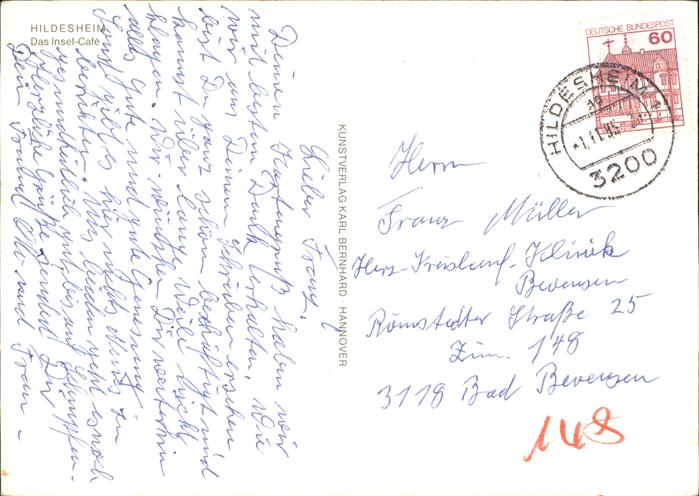 HILDESHEIM
Das Insel-Café
Lieber Franz,
Deinen Kurkartengruß haben wir
mit bestem Dank erhalten. Wie
wir aus Deinem Schreiben ersehen
bist Du ganz schön beschäftigt und
kannst über lange Weile nicht
klagen. Wir wünschen Dir weiterhin
alles Gute und gute Genesung.
Sonst gibt es hier nichts Neues zu
berichten. Uns beiden geht es noch
gesundheitlich
Herzliche Grüße sendet Dir
Dein Freund Otto und Frau
KUNSTVERLAG KARL BERNHARD · HANNOVER
DEUTSCHE BUNDESPOST
60
HILDESHEIM
3200
Herrn
Franz Müller
Herz-Kreislauf-Klinik
Bevensen
Römstedter Straße 25
Zim. 148
3118 Bad Bevensen
148